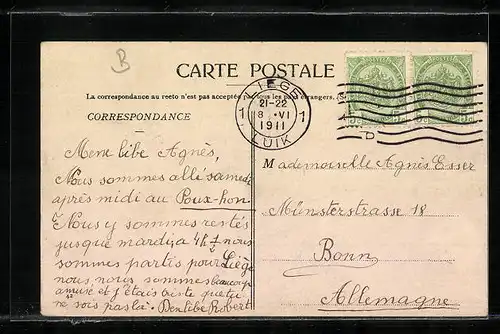 B
CARTE POSTALE
La correspondance au recto n'est pas acceptée par tous les pays étrangers. (Se
CORRESPONDANCE
LIEGE
1 21-22 1
8 VI
1911
LUIK
Meme libe Agnès,
Nous sommes allé samedi
après midi au Poux-hon
Nous y sommes restés
jusque mardi a 4h ½ nous
sommes partis pour Liège
nous nous sommes beaucoup
amusé et j'étais triste que tu
ne sois pas là. Robert
Mademoiselle Agnès Esser
Münsterstrasse 18
Bonn
Allemagne